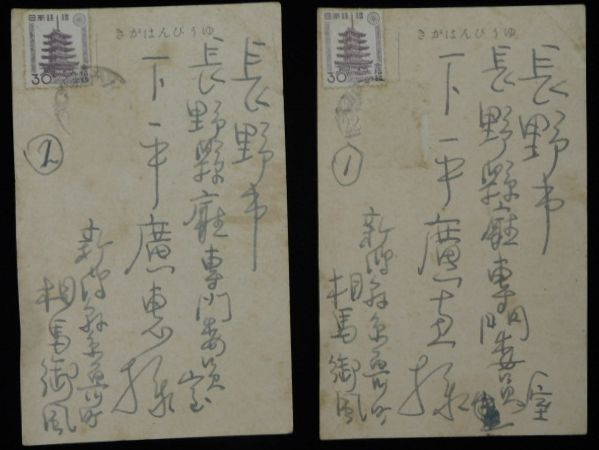 きがはんびうゆ
日本郵便
30
長野市
長野縣廳専門委員室
下平廣惠様
新潟縣糸魚川町
相馬御風
2
きがはんびうゆ
日本郵便
30
長野市
長野縣廳専門委員室
下平廣惠様
新潟縣糸魚川町
相馬御風
1